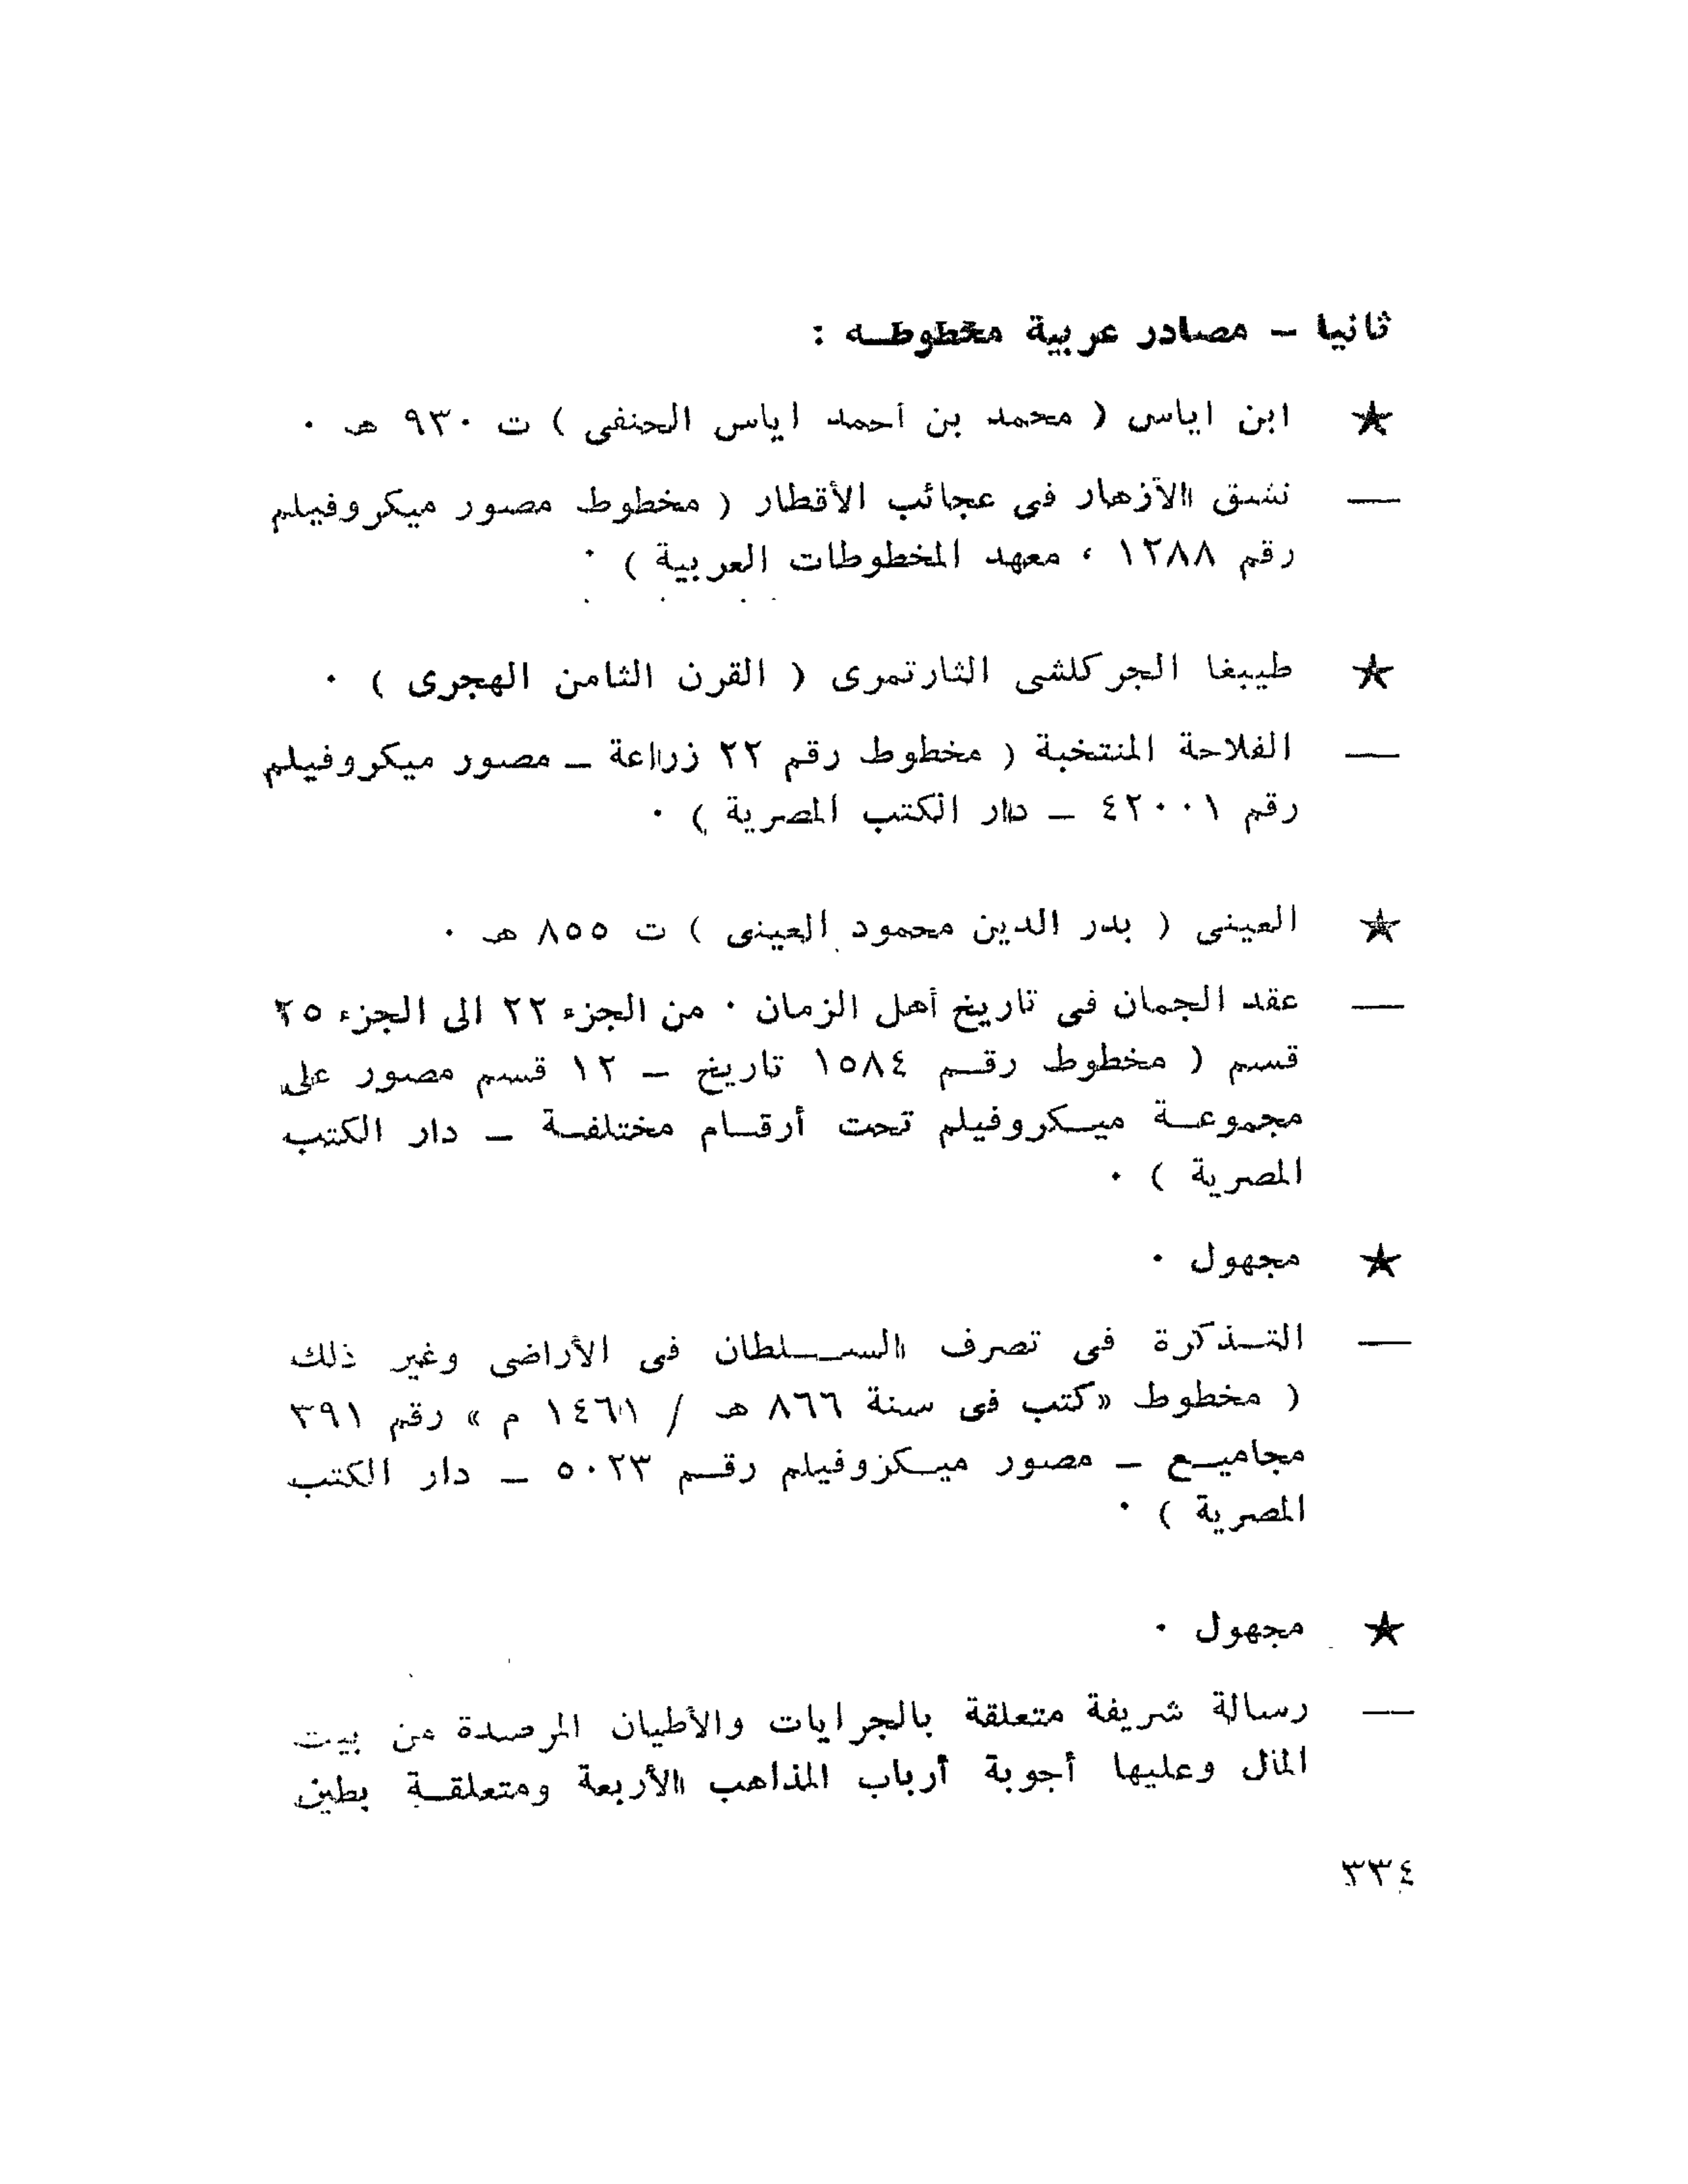 ثانيا – مصادر عربية مخطوطه :
★ ابن اياس ( محمد بن أحمد اياس الحنفى ) ت ٩٣٠ هـ ·
— نشق الأزهار فى عجائب الأقطار ( مخطوط مصور ميكروفيلم
رقم ١٢٨٨ ، معهد المخطوطات العربية ) ·
★ طيبغا الجركلشى الثارتمرى ( القرن الثامن الهجرى ) ·
— الفلاحة المنتخبة ( مخطوط رقم ٢٢ زراعة – مصور ميكروفيلم
رقم ٤٢٠٠١ – دار الكتب المصرية ) ·
★ العينى ( بدر الدين محمود العينى ) ت ٨٥٥ هـ ·
— عقد الجمان فى تاريخ أهل الزمان · من الجزء ٢٢ الى الجزء ٢٥
قسم ( مخطوط رقم ١٥٨٤ تاريخ – ١٢ قسم مصور على
مجموعة ميكروفيلم تحت أرقام مختلفة – دار الكتب
المصرية ) ·
★ مجهول ·
— التذكرة فى تصرف السلطان فى الأراضى وغير ذلك
( مخطوط «كتب فى سنة ٨٦٦ هـ / ١٤٦١ م » رقم ٣٩١
مجاميع – مصور ميكزوفيلم رقم ٥٠٢٣ – دار الكتب
المصرية ) ·
★ مجهول ·
— رسالة شريفة متعلقة بالجرايات والأطيان المرصدة من بيت
المال وعليها أجوبة أرباب المذاهب الأربعة ومتعلقة بطين
٣٣٤